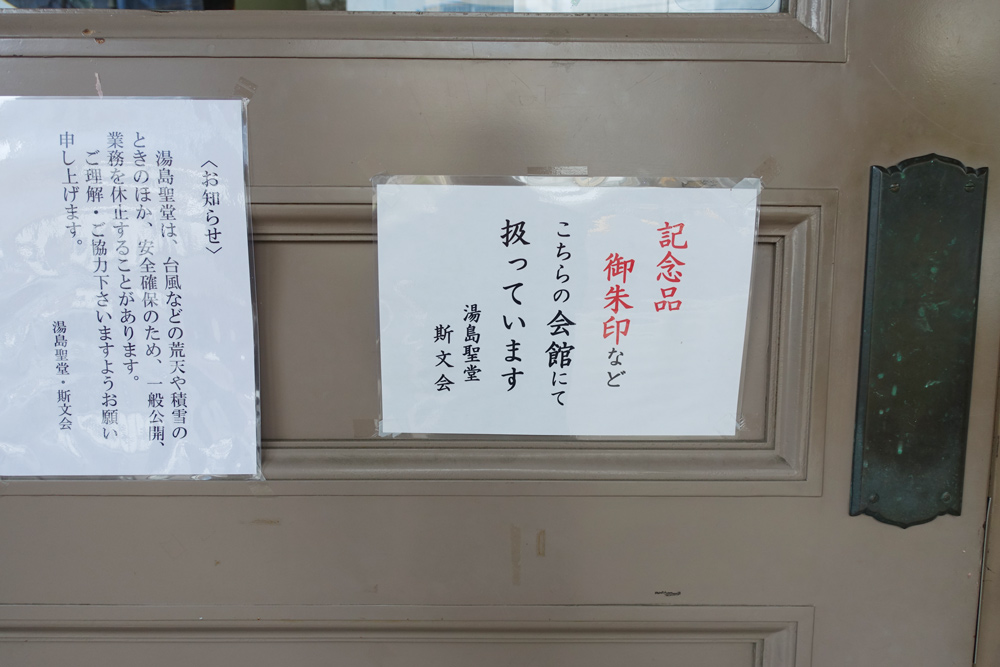 〈お知らせ〉
湯島聖堂は、台風などの荒天や積雪の
ときのほか、安全確保のため、一般公開、
業務を休止することがあります。
ご理解・ご協力下さいますようお願い
申し上げます。
湯島聖堂・斯文会
記念品
御朱印など
こちらの会館にて
扱っています
湯島聖堂
斯文会